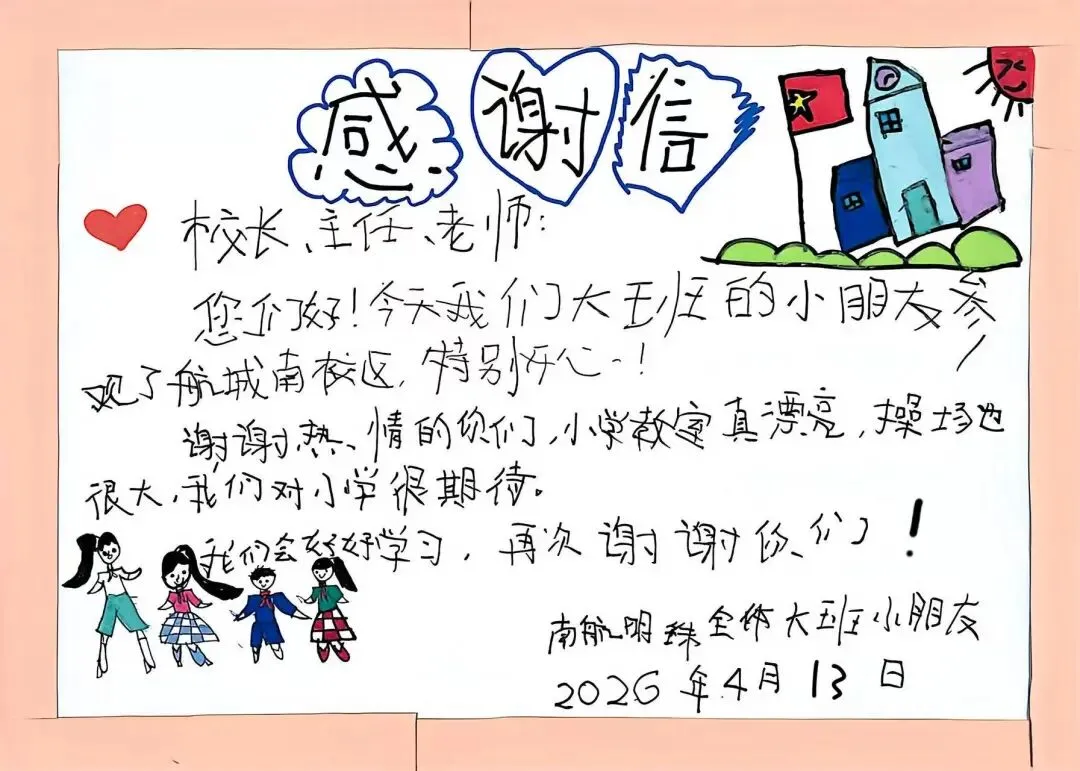 感谢信
校长、主任、老师:
您们好!今天我们大班的小朋友参
观了航城南校区,特别开心!
谢谢热情的你们,小学教室真漂亮,操场也
很大,我们对小学很期待。
我们会好好学习,再次谢谢你们!
南航明珠全体大班小朋友
2026年4月13日